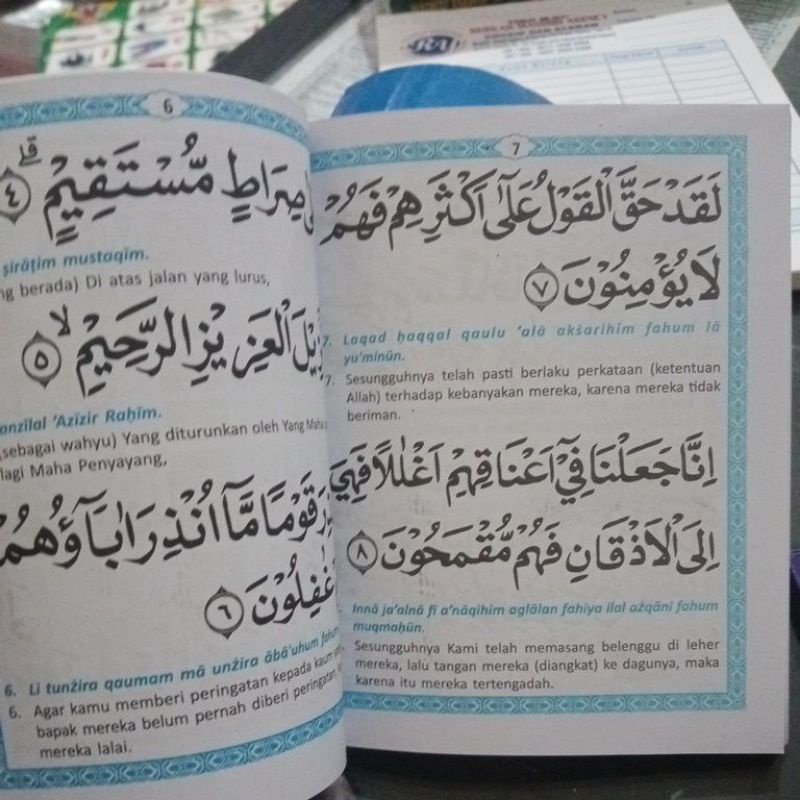 6
صِرَاطٍ مُّسْتَقِيْمٍۗ ٤
ṣirāṭim mustaqīm.
berada) Di atas jalan yang lurus,
الْعَزِيْزِ الرَّحِيْمِۙ ٥
'Azīzir Raḥīm.
sebagai wahyu) Yang diturunkan oleh Yang Maha
lagi Maha Penyayang,
قَوْمًا مَّآ اُنْذِرَ اٰبَاۤؤُهُمْ
غٰفِلُوْنَ ٦
6. Li tunżira qaumam mā unżira ābā'uhum fahum
6. Agar kamu memberi peringatan kepada kaum
bapak mereka belum pernah diberi peringatan,
mereka lalai.
7
لَقَدْ حَقَّ الْقَوْلُ عَلٰٓى اَكْثَرِهِمْ فَهُمْ
لَا يُؤْمِنُوْنَ ٧
7. Laqad ḥaqqal qaulu 'alā akṡarihim fahum lā
yu'minūn.
7. Sesungguhnya telah pasti berlaku perkataan (ketentuan
Allah) terhadap kebanyakan mereka, karena mereka tidak
beriman.
اِنَّا جَعَلْنَا فِيْٓ اَعْنَاقِهِمْ اَغْلٰلًا فَهِيَ
اِلَى الْاَذْقَانِ فَهُمْ مُّقْمَحُوْنَ ٨
Innā ja'alnā fī a'nāqihim aglālan fahiya ilal ażqāni fahum
muqmaḥūn.
Sesungguhnya Kami telah memasang belenggu di leher
mereka, lalu tangan mereka (diangkat) ke dagunya, maka
karena itu mereka tertengadah.